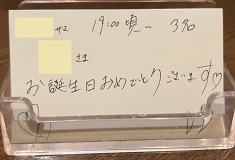 サマ 19:00頃〜 3名
さま
お誕生日おめでとうございます♡